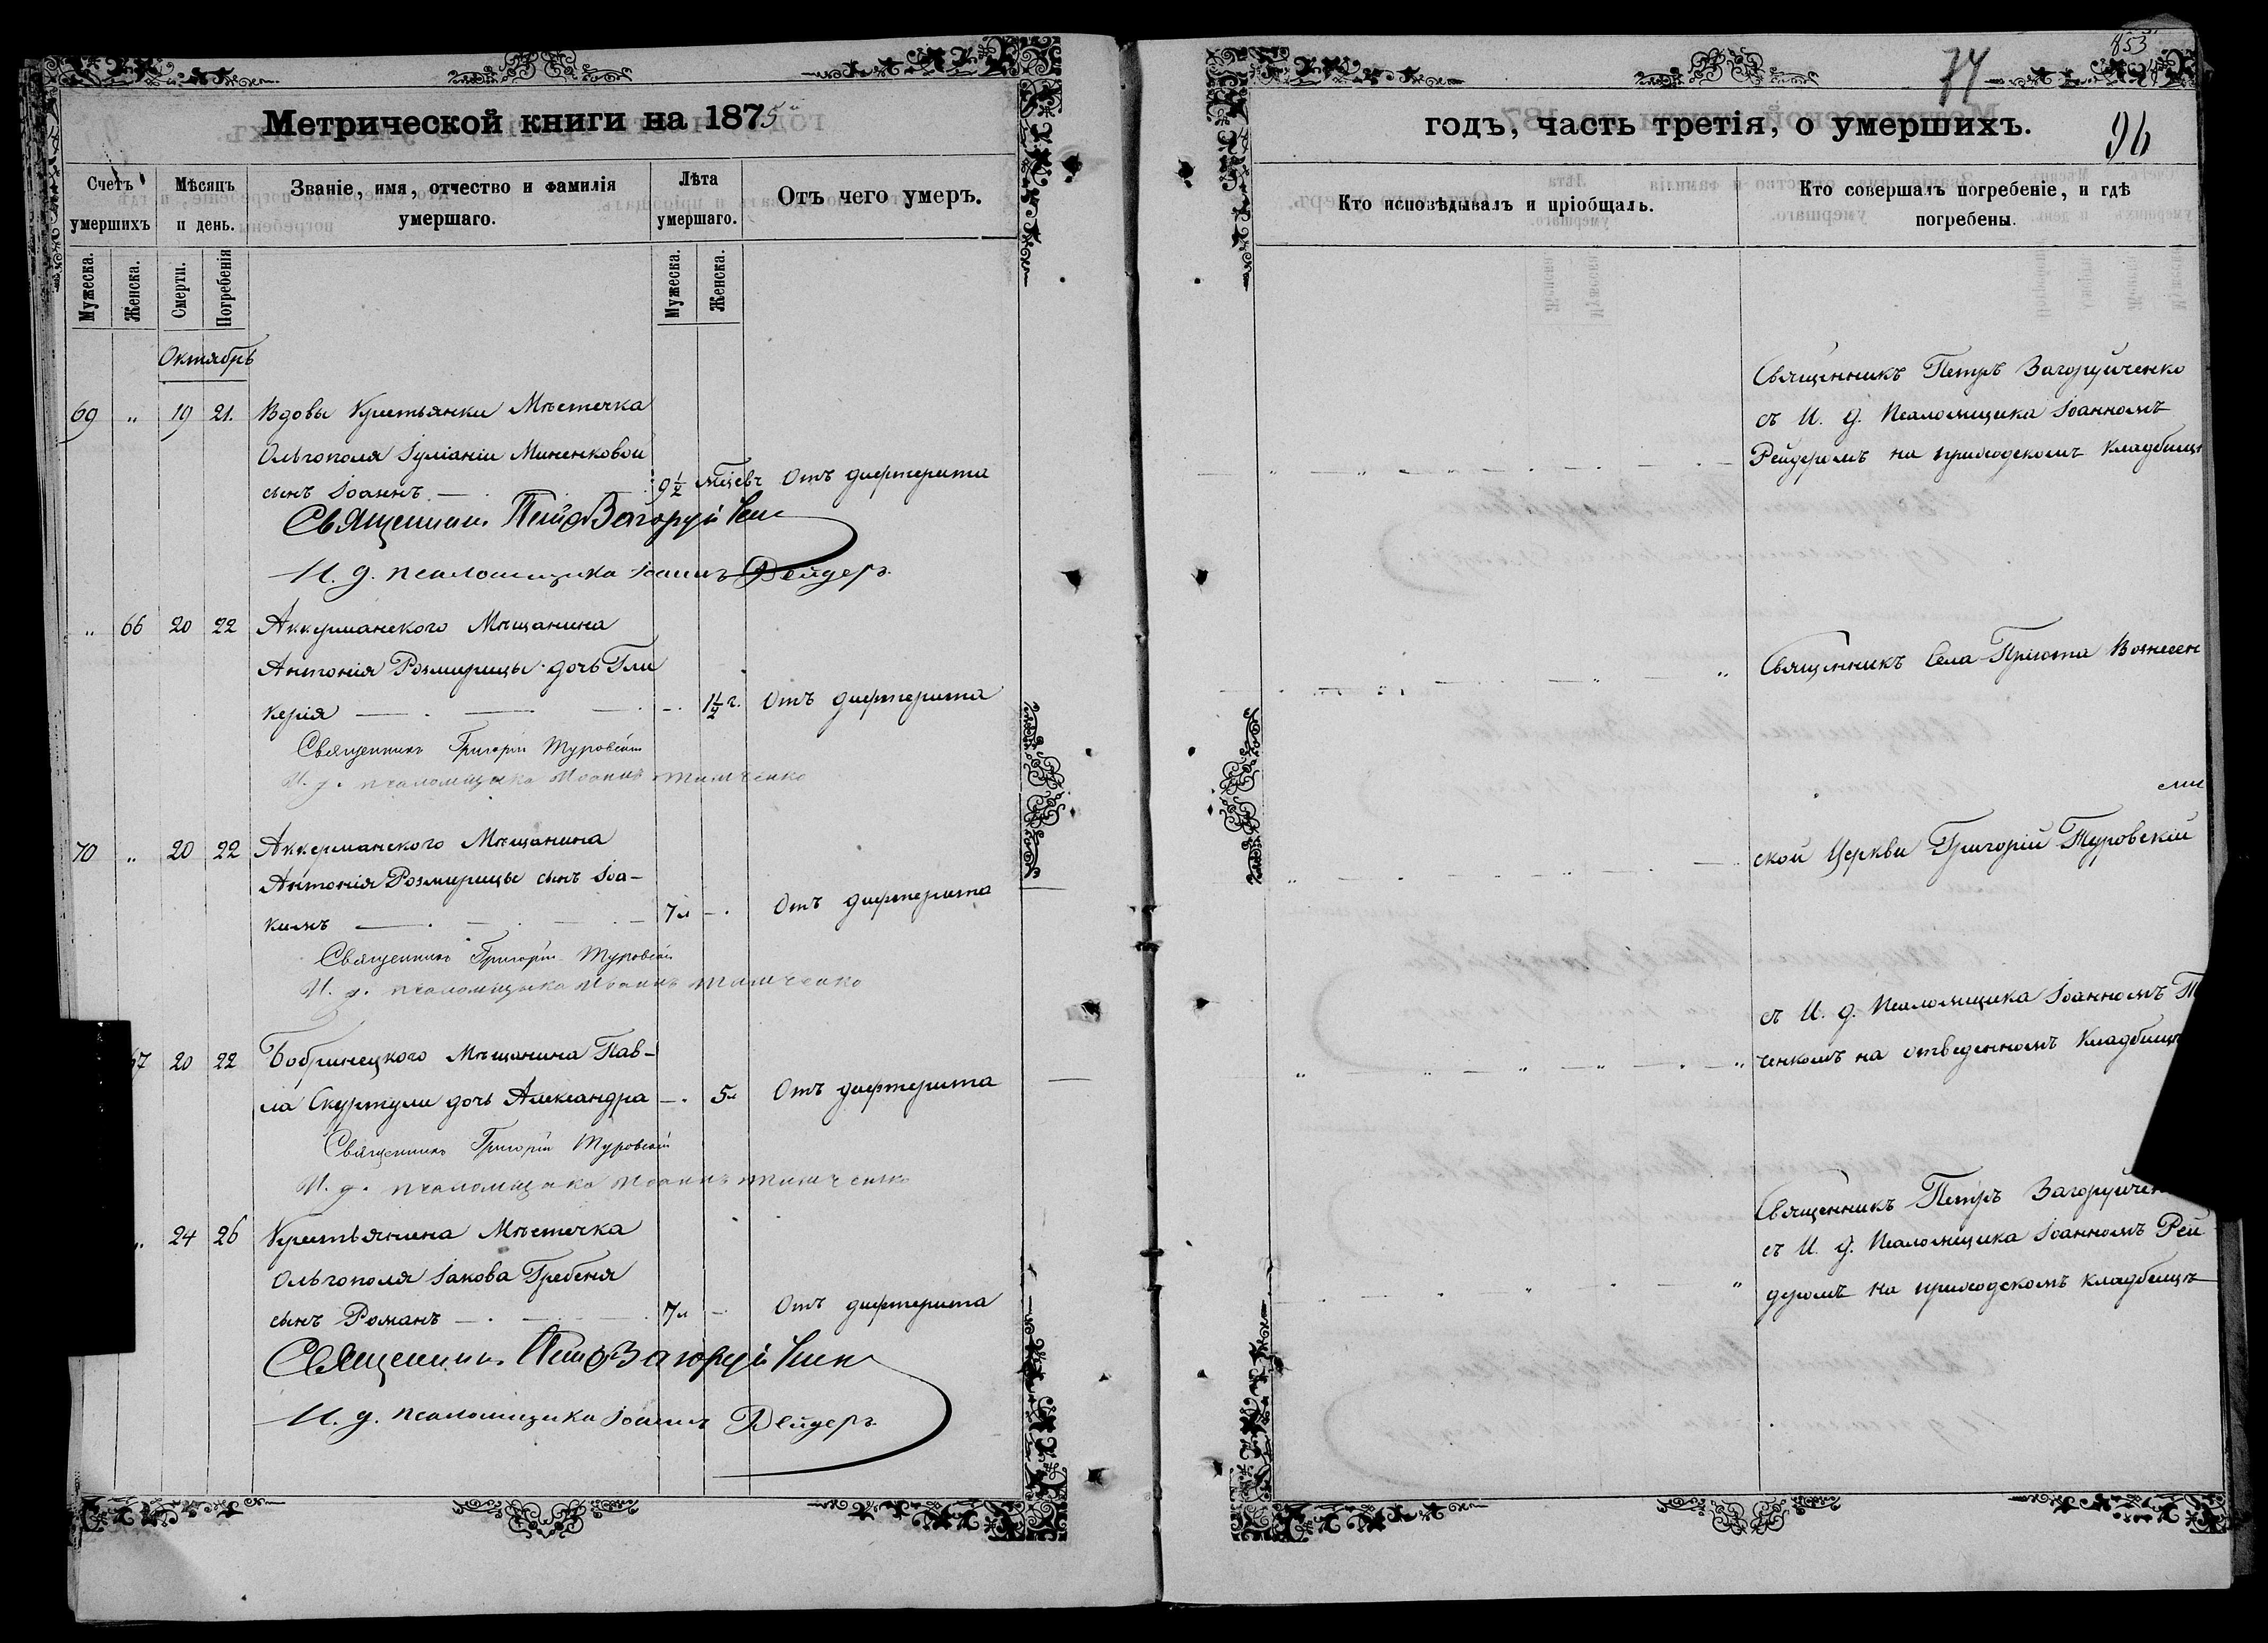 Метрической книги на 1875й
Счетъ умершихъ
Мѣсяцъ и день.
Званіе, имя, отчество и фамилія умершаго.
Лѣта умершаго.
Отъ чего умеръ.
Мужеска.
Женска.
Смерти.
Погребенія
Мужеска.
Женска.
Октябрь
69 " 19 21. Вдовы Крестьянки Мѣстечка
Ольгополя Іуліаніи Миненковой
сынъ Іоаннъ 9½ мѣсяч Отъ дифтерита
Священникъ Петръ Загоруйченко
И. д. псаломщика Іоаннъ Рейдеръ
" 66 20 22 Аккерманскаго Мѣщанина
Антонія Розмирицы дочь Гли
керія 1½ г. Отъ дифтерита
Священникъ Григорій Туровскій
И. д. псаломщика Иоаннъ Тимченко
70 " 20 22 Аккерманскаго Мѣщанина
Антонія Розмирицы сынъ Іоа-
кимъ 7л Отъ дифтерита
Священникъ Григорій Туровскій
И. д. псаломщика Иоаннъ Тимченко
67 20 22 Бобринецкого Мѣщанина Пав-
ла Скуртули дочь Александра 5л Отъ дифтерита
Священникъ Григорій Туровскій
И. д. псаломщика Иоаннъ Тимченко
" 24 26 Крестьянина Мѣстечка
Ольгополя Іакова Гребеня
сынъ Романъ 7л Отъ дифтерита
Священникъ Петръ Загоруйченко
И. д. псаломщика Іоаннъ Рейдеръ
853
74
96
годъ, часть третія, о умершихъ.
Кто исповѣдывалъ и пріобщалъ.
Кто совершалъ погребеніе, и гдѣ погребены.
Священникъ Петръ Загоруйченко
съ И. д. Псаломщика Іоанномъ
Рейдеромъ на приходскомъ кладбищ
Священникъ Села Пріюта Вознесен
ской Церкви Григорій Туровскій
съ И. д. Псаломщика Іоанномъ Т
ченкомъ на отведенномъ Кладбищ
Священникъ Петръ Загоруйчен
съ И. д. Псаломщика Іоанномъ Рей
деромъ на приходскомъ кладбищѣ